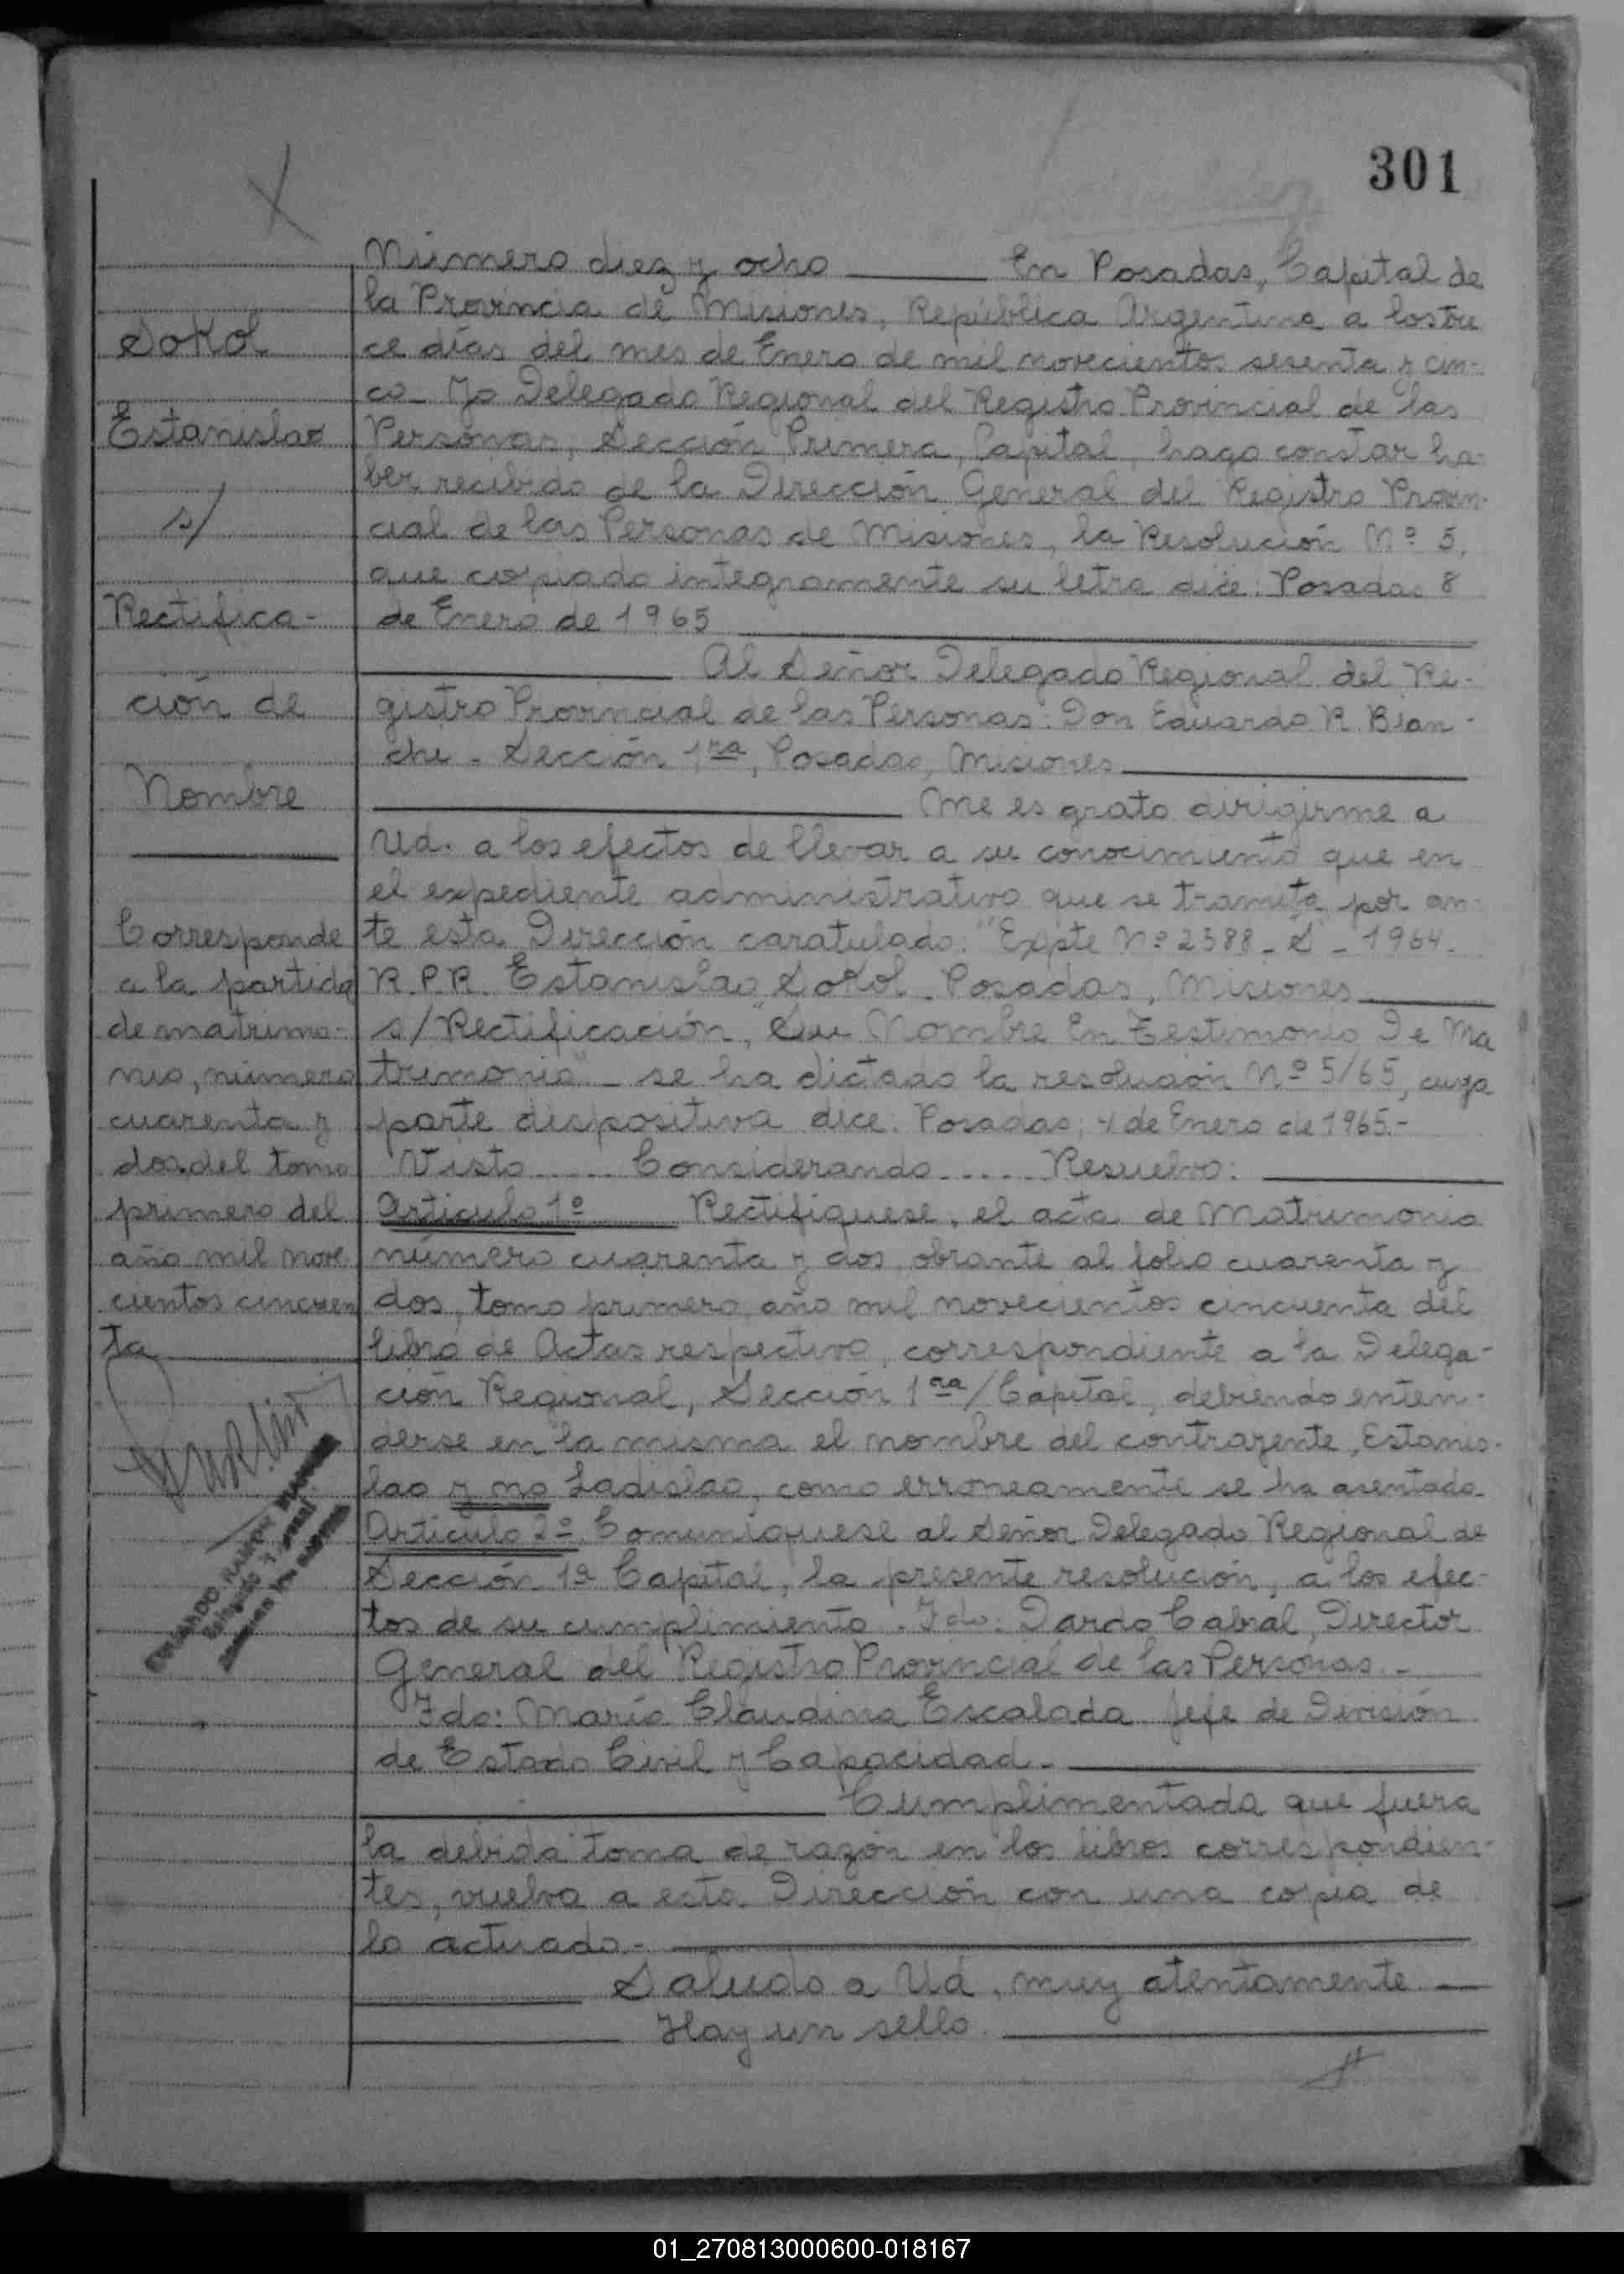 301
Número diez y ocho En Posadas, Capital de
la Provincia de Misiones, República Argentina a los tre
ce días del mes de Enero de mil novecientos sesenta y cin-
co_ Yo Delegado Regional del Registro Provincial de las
Personas, Sección Primera, Capital, hago constar ha-
ber recibido de la Dirección General del Registro Provin-
cial de las Personas de Misiones, la Resolución Nº 5,
que copiado integramente su letra dice: Posadas 8
de Enero de 1965
Al Señor Delegado Regional del Re-
gistro Provincial de las Personas: Don Eduardo R. Bian-
chi - Sección 1ra, Posadas, Misiones
Me es grato dirigirme a
Ud. a los efectos de llevar a su conocimiento que en
el expediente administrativo que se tramita por an-
te esta Dirección caratulado: "Expte Nº 2588_S_1964_
R.P.R. Estanislao Sokol_ Posadas, Misiones
s/Rectificación, Su Nombre En Testimonio De Ma
trimonio"_ se ha dictado la resolución Nº 5/65, cuya
parte dispositiva dice: Posadas; 4 de Enero de 1965.-
Visto ..... Considerando ..... Resuelvo:
Articulo 1º Rectifiquese, el acta de Matrimonio
número cuarenta y dos, obrante al folio cuarenta y
dos, tomo primero, año mil novecientos cincuenta del
libro de Actas respectivo, correspondiente a la Delega-
ción Regional, Sección 1ra/Capital, debiendo enten-
derse en la misma el nombre del contrayente, Estanis-
lao y no Ladislao, como erroneamente se ha asentado_
Articulo 2º. Comuniquese al Señor Delegado Regional de
Sección 1ª Capital, la presente resolución, a los efec-
tos de su cumplimiento. Fdo: Dardo Cabral, Director
General del Registro Provincial de las Personas_
Fdo: María Claudina Escalada Jefe de División
de Estado Civil y Capacidad_
Cumplimentada que fuera
la debida toma de razón en los libros correspondien-
tes, vuelva a esta Dirección con una copia de
lo actuado_
Saludo a Ud, muy atentamente
Hay un sello
Sokol
Estanislao
s/
Rectifica-
ción de
Nombre
Corresponde
a la partida
de matrimo-
nio, número
cuarenta y
dos del tomo
primero del
año mil nove
cientos cincuen
ta
EDUARDO RAMON BIANCHI
01_270813000600-018167